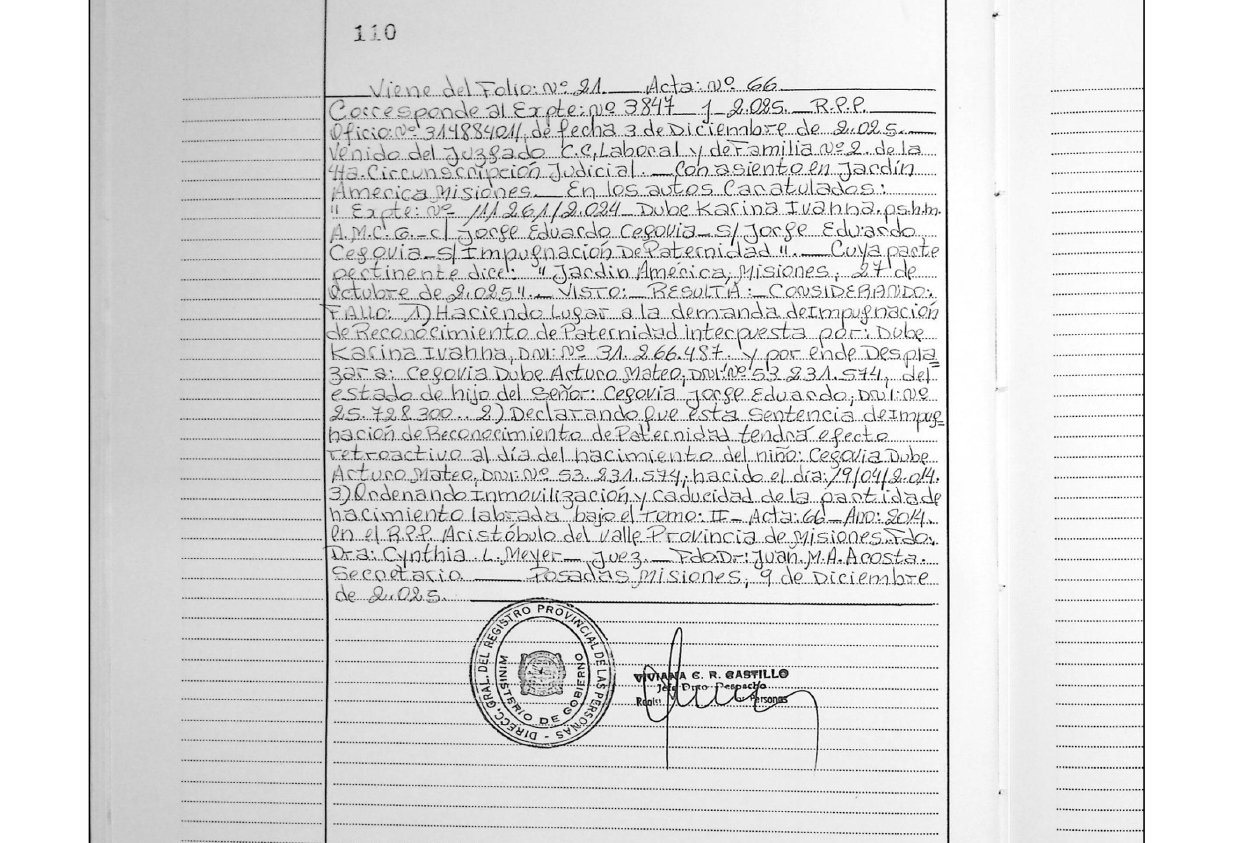 110
Viene del Folio: Nº 21. Acta: Nº 66
Corresponde al Expte: Nº 3847 J 2.025. R.P.P.
Oficio: Nº 31488401/, de fecha 3 de Diciembre de 2.025.
Venido del Juzgado C.C, Laboral y de Familia Nº 2. de la
4ta. Circunscripción Judicial. Con asiento en Jardín
América, Misiones. En los autos Caratulados:
" Expte: Nº 11261/2.024 Dube Karina Ivanna. p.s.h.m.
A.M.C.G. c/ Jorge Eduardo Cegovia s/ Jorge Eduardo
Cegovia s/ Impugnación De Paternidad ". Cuya parte
pertinente dice: " Jardín América, Misiones, 27 de
Octubre de 2.025". VISTO: RESULTA: CONSIDERANDO:
FALLO: 1) Haciendo Lugar a la demanda de Impugnación
de Reconocimiento de Paternidad interpuesta por: Dube
Karina Ivanna, DNI: Nº 31.266.487. y por ende Despla=
zara: Cegovia Dube Arturo Mateo, DNI: Nº 53.231.574, del
estado de hijo del Señor: Cegovia Jorge Eduardo, DNI: Nº
25.728.300.. 2) Declarando Que esta Sentencia de Impug=
nación de Reconocimiento de Paternidad tendrá efecto
retroactivo al día del nacimiento del niño: Cegovia Dube
Arturo Mateo, DNI: Nº 53.231.574, nacido el día: 19/04/2.014.
3) Ordenando Inmovilización y caducidad de la partida de
nacimiento labrada bajo el Tomo: II Acta: 66 Año: 2014.
en el R.P.P. Aristóbulo del Valle Provincia de Misiones. Fdo.
Dra: Cynthia L. Meyer Juez. Fdo Dr: Juan. M.A. Acosta.
Secretario Posadas Misiones, 9 de Diciembre
de 2.025.
DIRECC. GRAL. DEL REGISTRO PROVINCIAL DE LAS PERSONAS -
MINISTERIO DE GOBIERNO
VIVIANA C. R. CASTILLO
Jefe Dpto Despacho
Personas